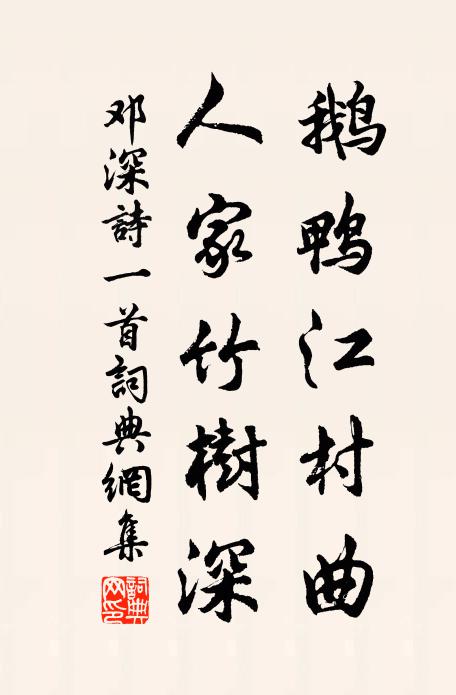 鹅鸭江村曲
人家竹樹深
邓深詩一首詞典網集
詞典
网印